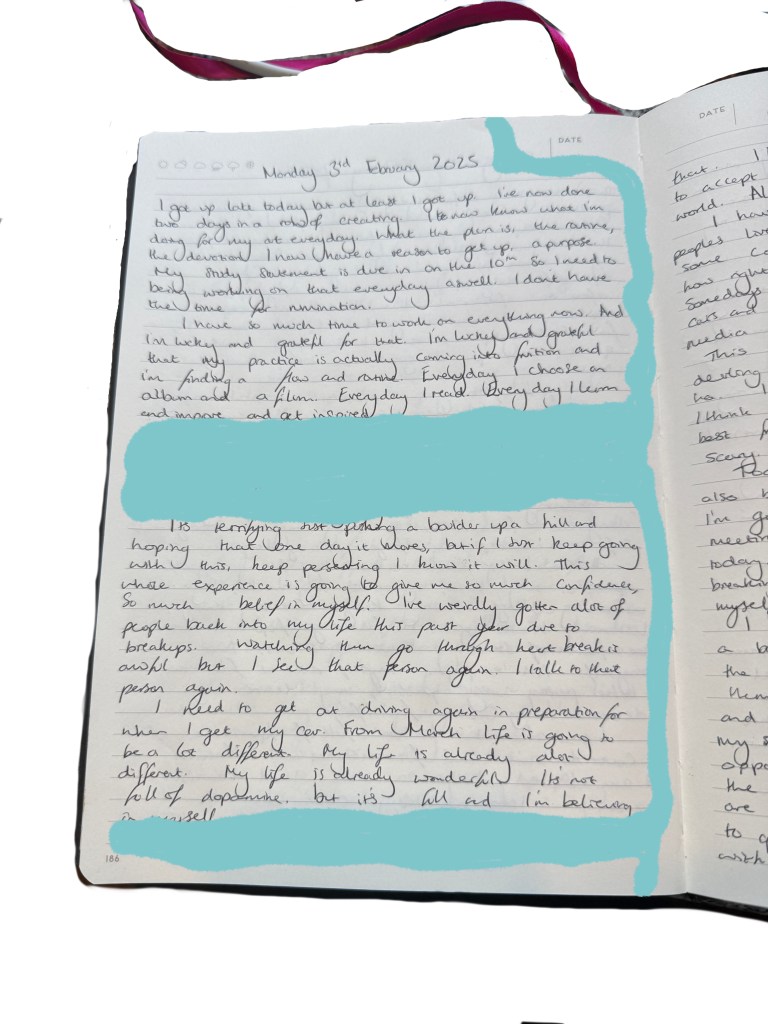 DATE
Monday 3rd Febuary 2025
I got up late today but at least I got up. I've now done
two days in a row of creating. I now know what I'm
doing for my art everyday. What the plan is, the routine,
the devotion. I now have a reason to get up, a purpose.
My study statement is due in on the 10th so I need to
being working on that everyday aswell. I don't have
the time for rumination.
I have so much time to work on everything now. And
I'm lucky and grateful for that. I'm lucky and grateful
that my practice is actually coming into fruition and
i'm finding a flow and routine. Everyday I choose an
album and a film. Everyday I read. Every day I learn
and improve and get inspired
Its terrifying just pushing a boulder up a hill and
hoping that one day it moves, but if I just keep going
with this, keep persisting I know it will. This
whole experience is going to give me so much confidence,
So much belief in myself. I've weirdly gotten alot of
people back into my life this past year due to
breakups. Watching them go through heart break is
awful but I see that person again. I talk to that
person again.
I need to get at driving again in preparation for
when I get my car. From March life is going to
be a lot different. My life is already alot
different. My life is already wonderful. Its not
full of dopamine. but it's full and I'm believing
in myself
186
DATE
that. I
to accept
world.
I have
peoples
some
how right
Somedays
cats and
media
This
devling
ha.
I think
best
Scary.
also
I'm
meeting
today
breaking
myself
I
a
the
them
and
my
oppo
the
are
to
with